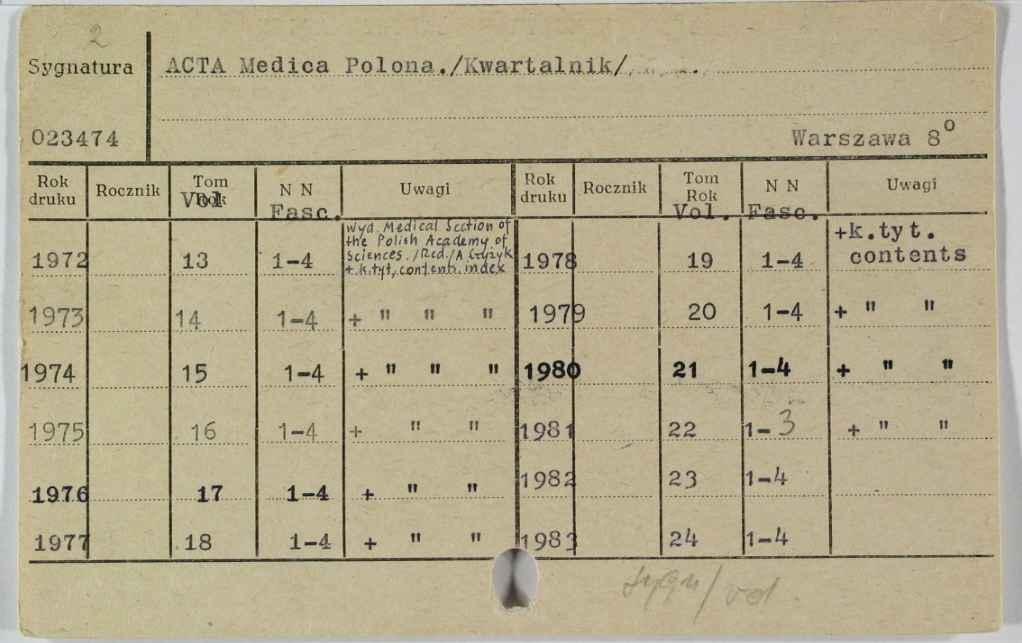 2
Sygnatura ACTA Medica Polona./Kwartalnik/
023474 Warszawa 8⁰
Rok druku Rocznik Tom Rok Vol N N Fasc. Uwagi Rok druku Rocznik Tom Rok Vol. N N Fasc. Uwagi
Wyd. Medical Section of
the Polish Academy of
Sciences. /Red./A
+.k.tyt, contents. index
+k.tyt.
contents
1972 13 1-4 1978 19 1-4
1973 14 1-4 + " " " 1979 20 1-4 + " "
1974 15 1-4 + " " " 1980 21 1-4 + " "
1975 16 1-4 + " " 1981 22 1-3 + " "
1976 17 1-4 + " " 1982 23 1-4
1977 18 1-4 + " " 1983 24 1-4
sygn/vol.